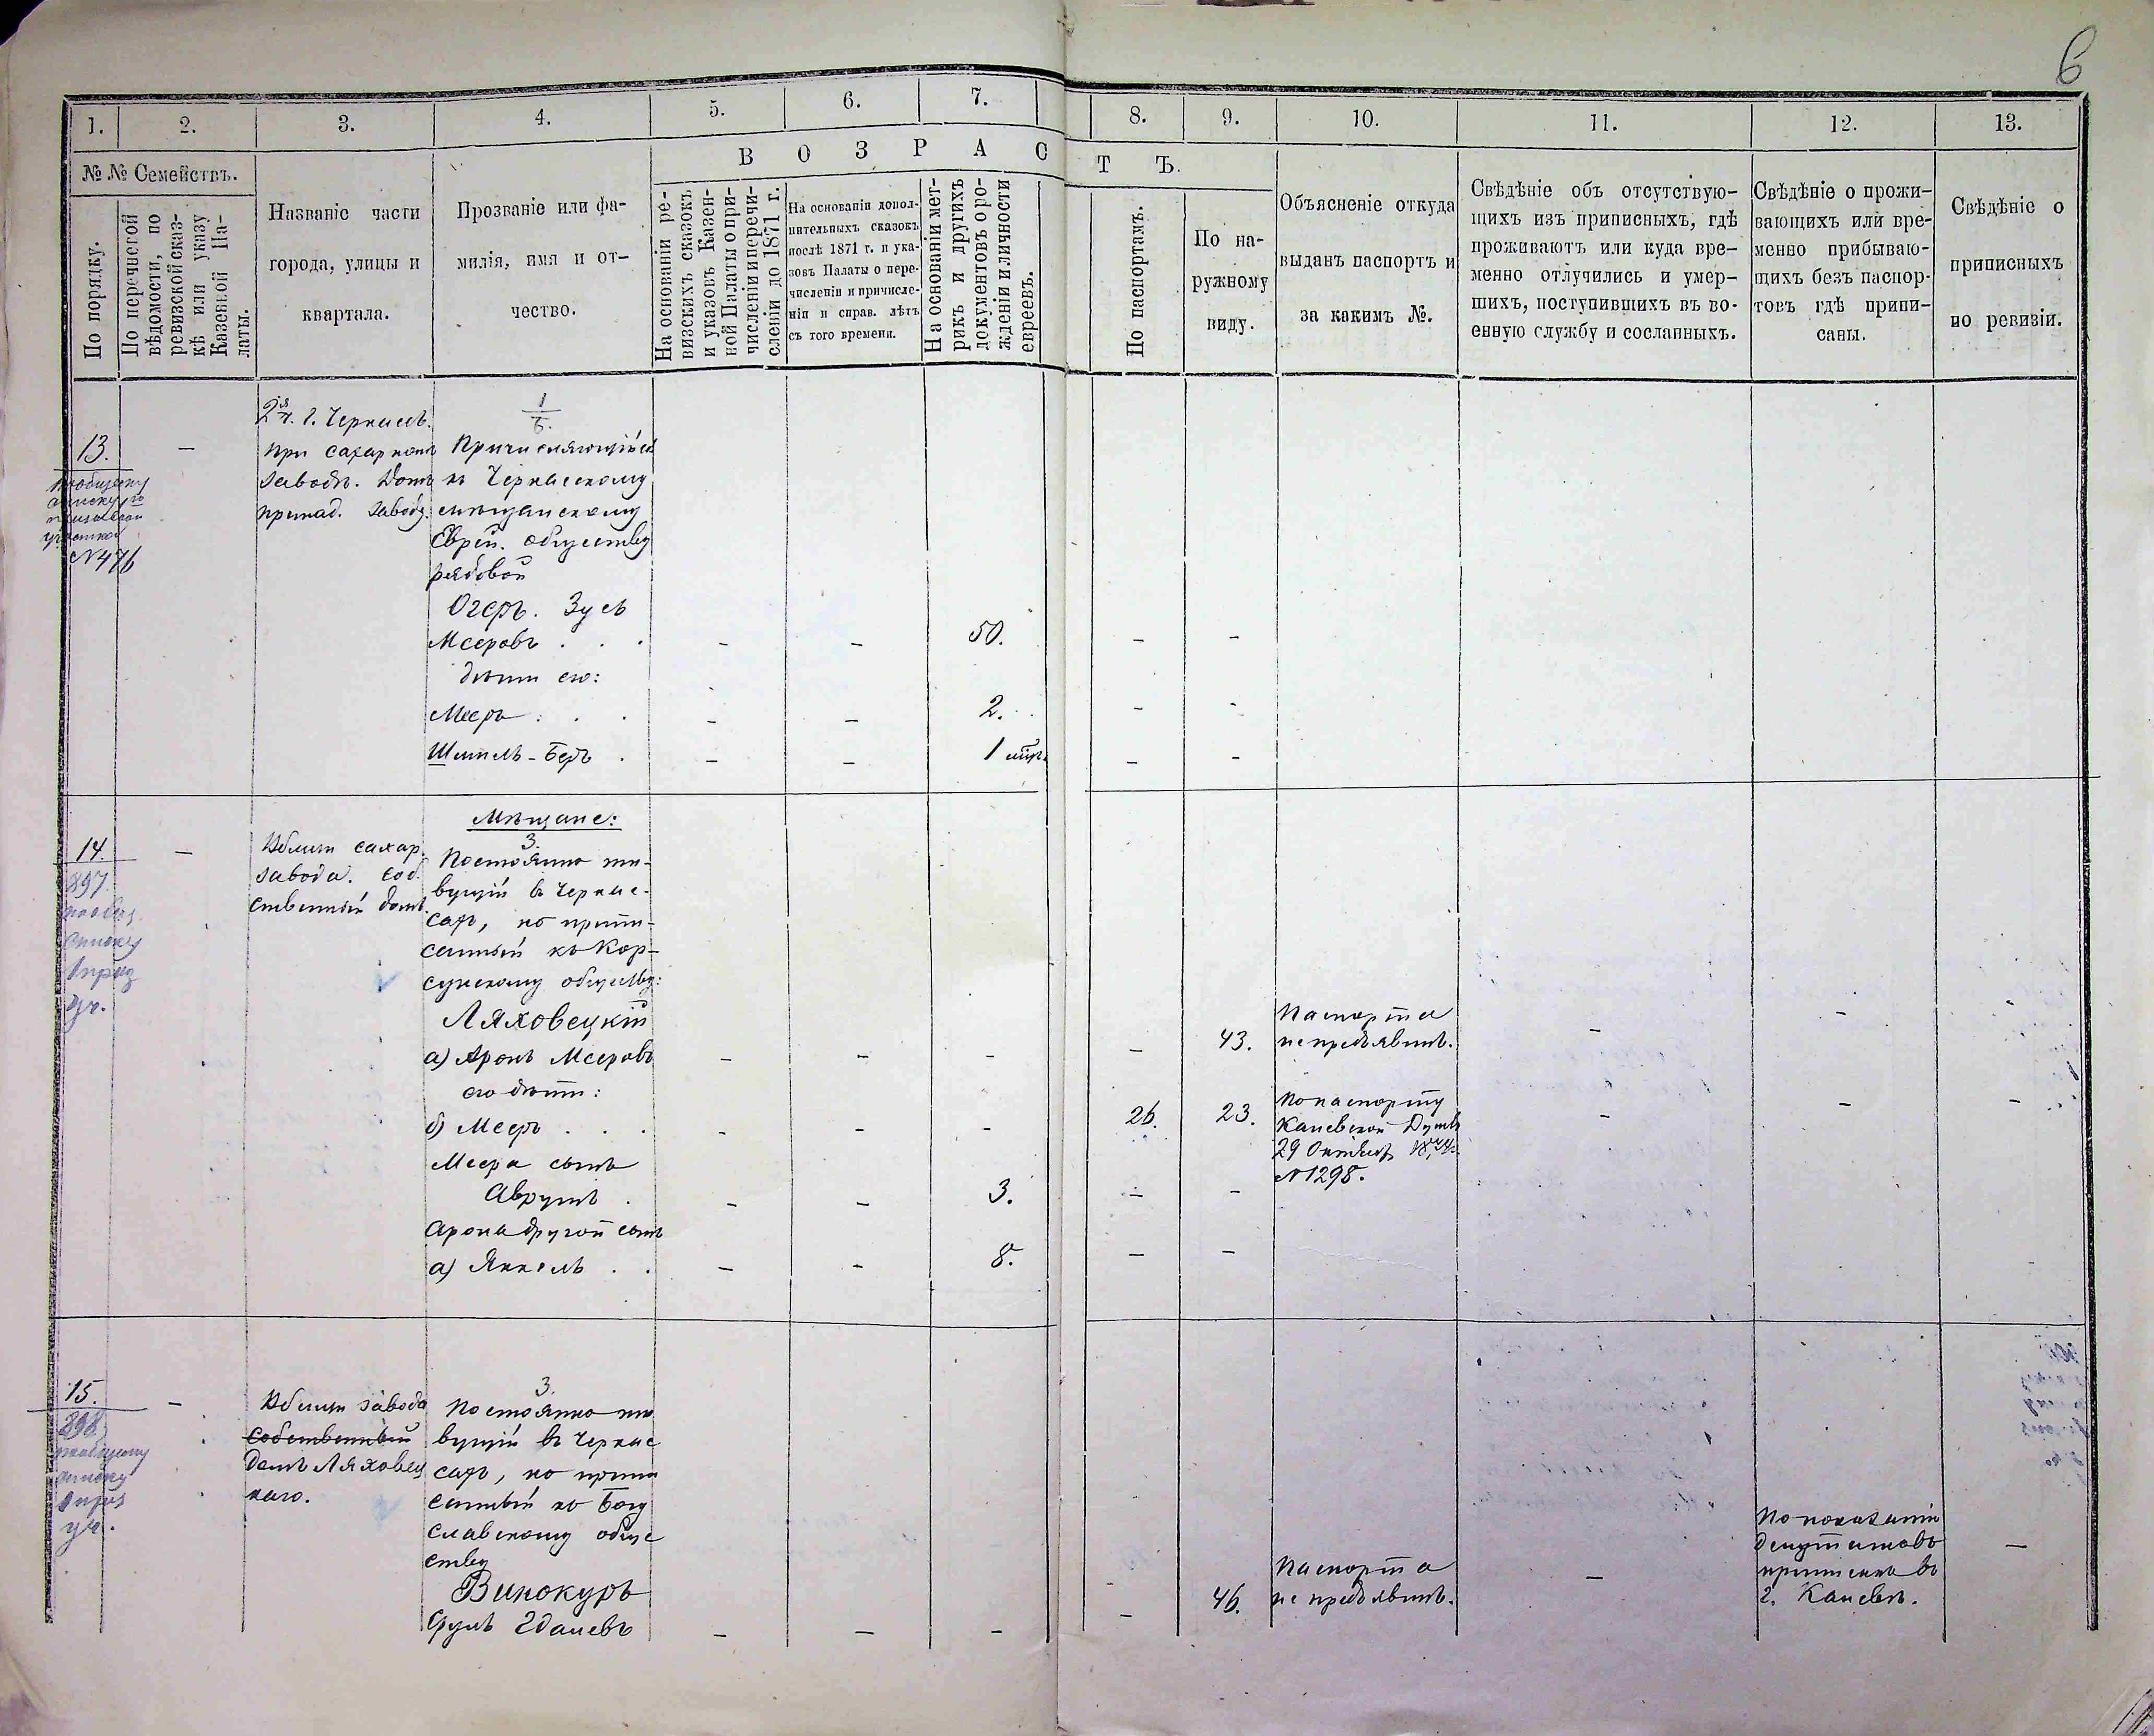 6
1. 2. 3. 4. 5. 6. 7. 8. 9. 10. 11. 12. 13.
№ № Семействъ.
По порядку.
По перечистой
вѣдомости, по
ревизской сказ-
кѣ или указу
Казенной Па-
латы.
Названіе части
города, улицы и
квартала.
Прозваніе или фа-
милія, имя и от-
чество.
В О З Р А С Т Ъ.
На основаніи ре-
визскихъ сказокъ
и указовъ Казен-
ной Палаты о при-
численіи и перечи-
сленіи до 1871 г.
На основаніи допол-
нительныхъ сказокъ
послѣ 1871 г. и ука-
зовъ Палаты о пере-
численіи и причисле-
ніи и справ. лѣтъ
съ того времени.
На основаніи мет-
рикъ и другихъ
документовъ о ро-
жденіи и личности
евреевъ.
По паспортамъ.
По на-
ружному
виду.
Объясненіе откуда
выданъ паспортъ и
за какимъ №.
Свѣдѣніе объ отсутствую-
щихъ изъ приписныхъ, гдѣ
проживаютъ или куда вре-
менно отлучились и умер-
шихъ, поступившихъ въ во-
енную службу и сосланныхъ.
Свѣдѣніе о прожи-
вающихъ или вре-
менно прибываю-
щихъ безъ паспор-
товъ гдѣ припи-
саны.
Свѣдѣніе о
приписныхъ
по ревизіи.
13. –
списку
№ 476
г. Черкасъ.
При сахарномъ
заводѣ. Домъ
принад. заводу.
1
Причисляющійся
къ Черкасскому
мѣщанскому
Еврей. обществу
рядовой
Огеръ. Зусь
Мееровъ . . . – – 50. – –
дѣти его:
Мееръ . . . – – 2. – –
Шмиль-Беръ . – – 1 – –
Мѣщане:
14. –
897.
списку
1 приз
уч.
Вблизи сахар.
завода. Соб
ственный домъ.
3.
Постоянно жи-
вущій въ Черкас-
сахъ, но припи-
санный къ Кор-
сунскому обществу:
Ляховецкій
а) Аронъ Мееровъ – – – – 43.
Паспорта
не предъявилъ. – –
его дѣти:
б) Мееръ . . . – – – 26. 23.
По паспорту
Каневской Думы
29 Октября
№ 1298. – – –
Меера сынъ
Аврумъ . – – 3. – –
Арона другой сынъ
а) Янкель . . – – 8. – –
15. –
898.
списку
уч.
Вблизи завода
собственный
домъ Ляховец
каго.
3.
Постоянно жи
вущій въ Черкас
сахъ, но припи
санный къ Богу
славскому обще
ству
Винокуръ
Срулъ Гдалевъ – – – – 46.
Паспорта
не предъявилъ. –
По показанію
депутатовъ
приписанъ въ
г. Каневѣ. –